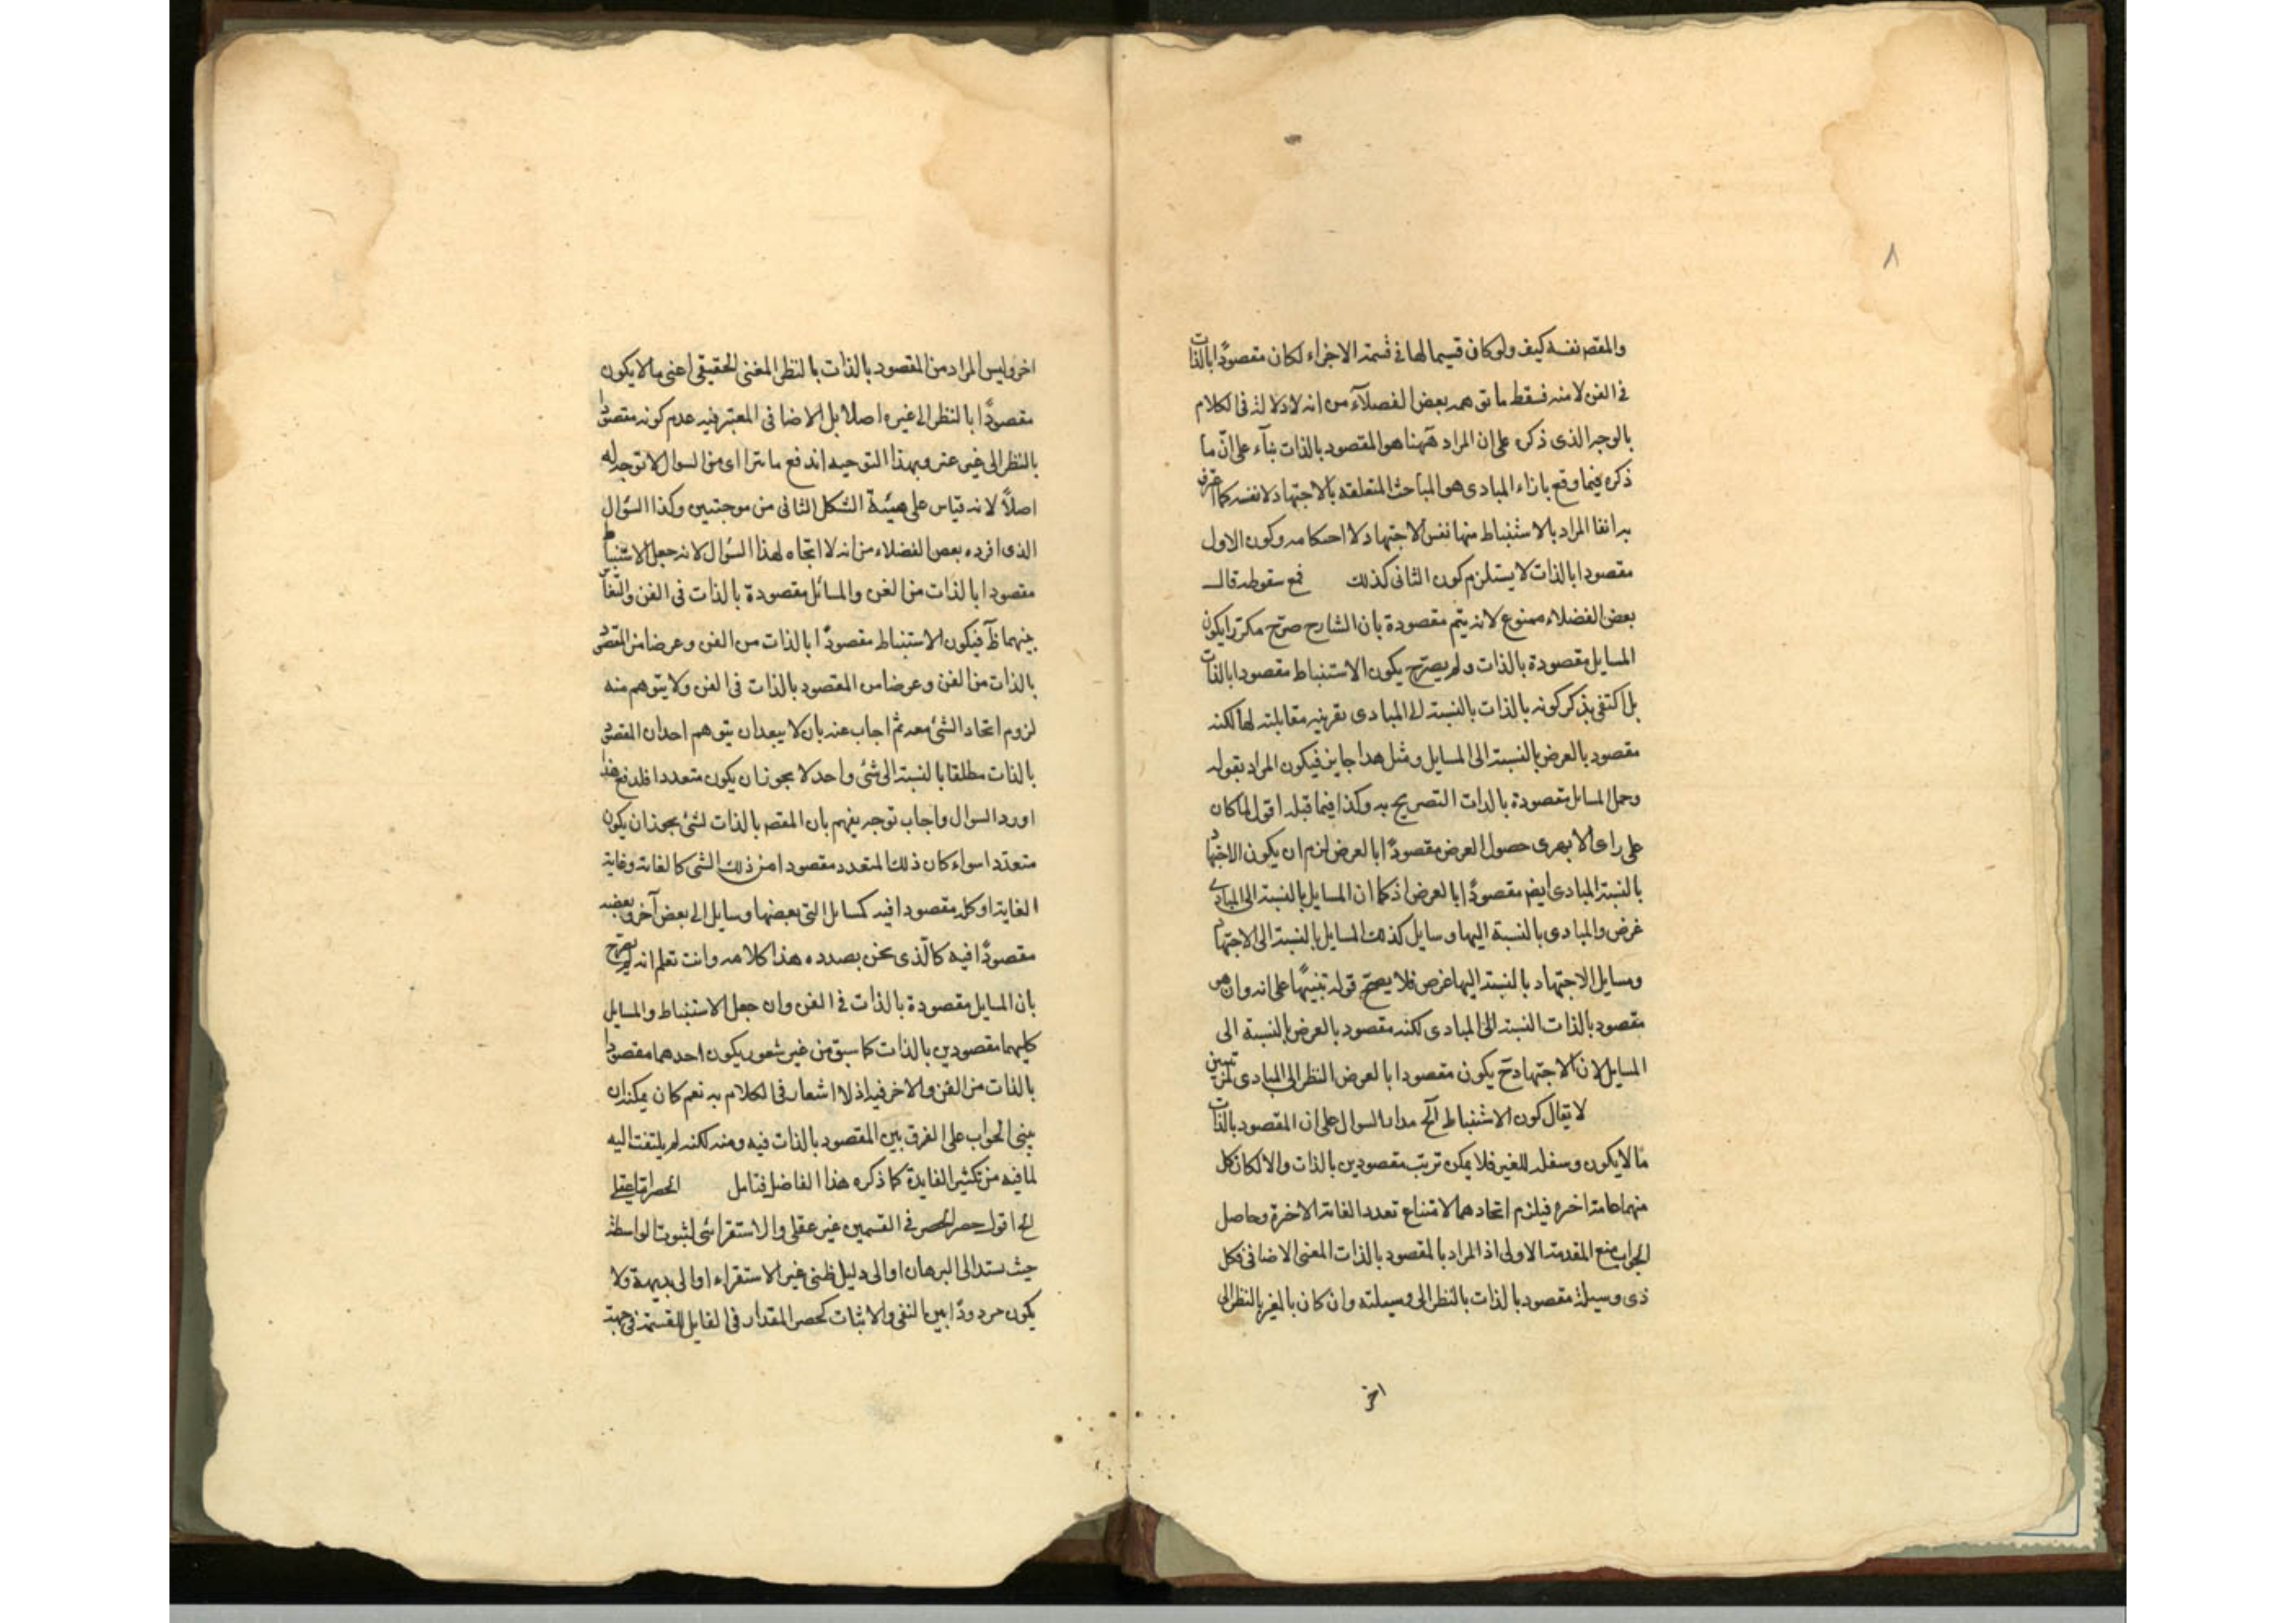 ٨
والمقصر نفسه كيف ولو كان قسيما لها فى قسمة الاجزاء لكان مقصودًا بالذات
فى الفن لا منه فسقط ما توهمه بعض الفضلآء من انه لا دلالة فى الكلام
بالوجه الذى ذكره على ان المراد ههنا هو المقصود بالذات بنآء على انّ ما
ذكره فيما وقع بازاء المبادى هو المباحث المتعلقه بالاجتهاد لا نفسه كما اعترف
به انفا المراد بالاستنباط منها نفس الاجتهاد لا احكامه وكون الاول
مقصودا بالذات لا يستلزم كون الثانى كذلك فمع سقوطه قال
بعض الفضلاء ممنوع لانه يتم مقصودة بان الشارح صرّح مكررا بكون
المسايل مقصودة بالذات ولم يصرّح بكون الاستنباط مقصودا بالذات
بل اكتفى بذكر كونه بالذات بالنسبة الى المبادى بقرينه مقابلته لها لكنه
مقصود بالعرض بالنسبة الى المسايل ومثل هذا جايز فيكون المراد بقوله
وحمل المسائل مقصودة بالذات التصريح به وكذا فيما قبله اقول لما كان
على راى الابهرى حصول العرض مقصودًا بالعرض لزم ان يكون الاجتهاد
بالنسبة المبادى ايضر مقصودًا بالعرض اذ كما ان المسايل بالنسبة الى المبادى
غرض والمبادى بالنسبة اليها وسايل كذلك المسايل بالنسبة الى الاجتهاد
ومسايل الاجتهاد بالنسبة اليها غرض فلا يصحّ قوله تنبيهًا على انه وان هو
مقصود بالذات النسبة الى المبادى لكنه مقصود بالعرض بالنسبة الى
المسايل لان الاجتهاد تح يكون مقصودا بالعرض النظر الى المبادى
لا يقال كون الاستنباط آلخ مدار السوال على ان المقصود بالذات
ما لا يكون وسيلة للغير فلا يمكن ترتب مقصودين بالذات والا لكان كل
منهما غاية اخرة فيلزم اتحادهما لامتناع تعدد الغاية الاخرة وحاصل
الجواب منع المقدمة الاولى اذ المراد بالمقصود بالذات المعنى الاضافى فكل
ذى وسيلة مقصود بالذات بالنظر الى وسيلته وان كان بالغير بالنظر الى
اخر
اخر وليس المراد من المقصود بالذات بالنظر المعنى الحقيقى اعنى ما لا يكون
مقصودًا بالنظر الى غيره اصلا بل الاضافى المعتبر فيه عدم كونه مقصودا
بالنظر الى غير عنر وبهذا التوجيه اندفع ما يتراآى من السوال لا توجه له
اصلاً لانه قياس على هيئة الشكل الثانى من موجبتين وكذا السؤال
الذى افرده بعض الفضلاء من انه لا اتجاه لهذا السؤال لانه جعل الاستنباط
مقصودا بالذات من الفن والمسائل مقصودة بالذات فى الفن والتغاير
بينهما ظآ فيكون الاستنباط مقصودًا بالذات من الفن وعرضا من المقصود
بالذات من الفن وعرضا من المقصود بالذات فى الفن ولا يتوهم منه
لزوم اتحاد الشئ معه ثم اجاب عنه بان لا يبعد ان يتوهم احد ان المقصود
بالذات مطلقا بالنسبة الى شئ واحد لا يجوز ان يكون متعددا فلدفع هذا
اورد السوال واجاب توجه يفهم بان المقصر بالذات لشئ يجوز ان يكون
متعدّدا سواء كان ذلك المتعدد مقصودا من ذلك الشى كالغاية وغاية
الغاية او كله مقصودا فيه كمسائل التى بعضها وسايل الى بعض آخر وبعضه
مقصودًا فيه كالّذى نحن بصدده هذا كلامه وانت تعلم انه لم يصرّح
بان المسايل مقصودة بالذات فى الفن وان جعل الاستنباط والمسايل
كليهما مقصودين بالذات كما سبق من غير شعور بكون احدهما مقصودا
بالذات من الفن والاخر فيه اذ لا اشعار فى الكلام به نعم كان يمكنه ان
يبنى الجواب على الفرق بين المقصود بالذات فيه ومنه لكنه لم يلتفت اليه
لما فيه من تكثير الفايدة كما ذكره هذا الفاضل فتامل الحصر اما عقلى
الخ اقول حصر الحصر فى القسمين غير عقلى والاستقرائى لثبوت الواسطة
حيث يستند الى البرهان او الى دليل ظنى غير الاستقراء او الى بديهة ولا
يكون مردودًا بين النفى والاثبات كحصر المقدار فى القابل للقسمة فى جهة